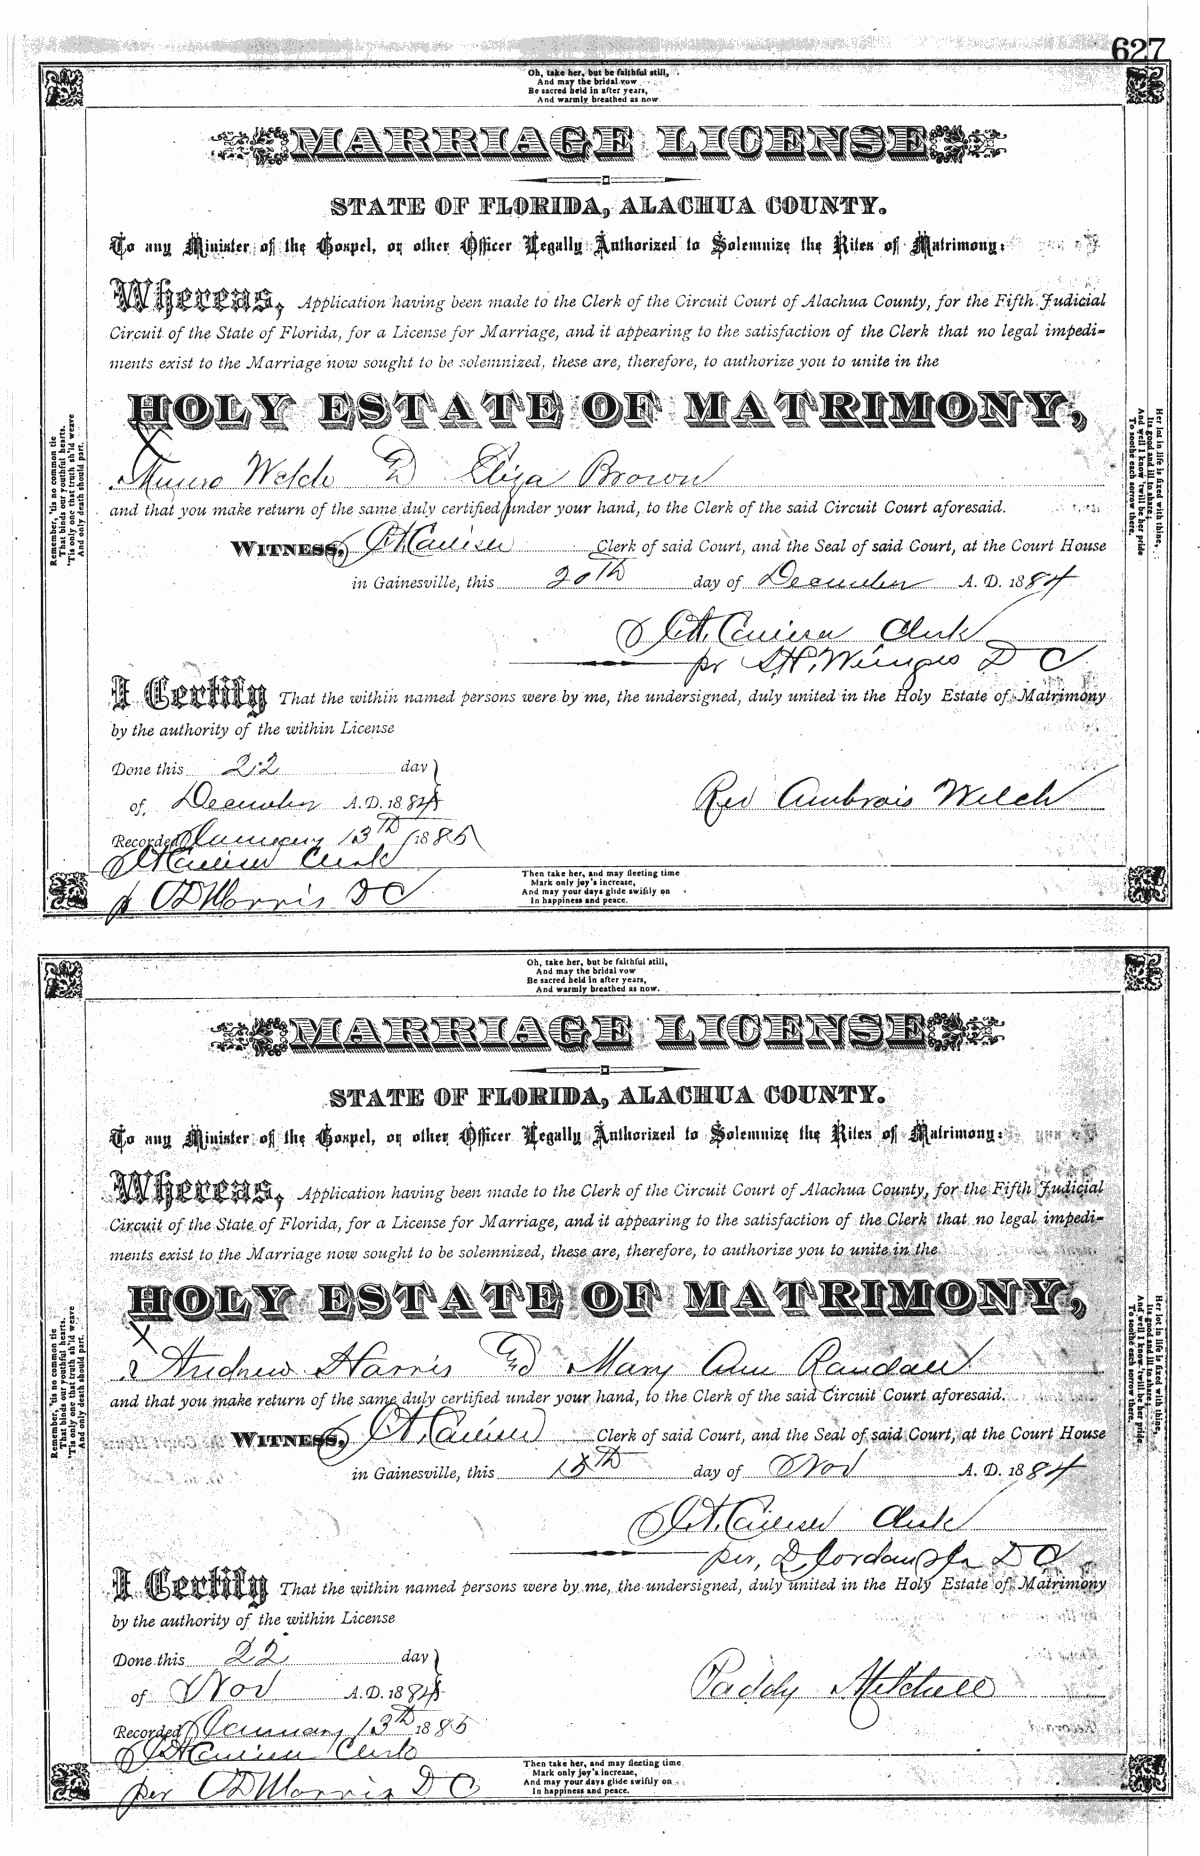 627
Oh, take her, but be faithful still,
And may the bridal vow
Be sacred held in after years,
And warmly breathed as now.
MARRIAGE LICENSE
STATE OF FLORIDA, ALACHUA COUNTY.
To any Minister of the Gospel, or other Officer Legally Authorized to Solemnize the Rites of Matrimony:
Whereas, Application having been made to the Clerk of the Circuit Court of Alachua County, for the Fifth Judicial
Circuit of the State of Florida, for a License for Marriage, and it appearing to the satisfaction of the Clerk that no legal impedi-
ments exist to the Marriage now sought to be solemnized, these are, therefore, to authorize you to unite in the
HOLY ESTATE OF MATRIMONY,
X
Munro Welch & Eliza Brown
and that you make return of the same duly certified under your hand, to the Clerk of the said Circuit Court aforesaid.
WITNESS, Clerk of said Court, and the Seal of said Court, at the Court House
in Gainesville, this 20th day of December A. D. 1884
Clerk
pr D C
I Certify That the within named persons were by me, the undersigned, duly united in the Holy Estate of Matrimony
by the authority of the within License
Done this 22 day
of December A. D. 1884
Rev Ambrois Welch
Recorded January 13th 1885
Clerk
p O D Morris D C
Remember, 'tis no common tie
That binds our youthful hearts,
'Tis only one that truth sh'ld weave
And only death should part.
Her lot in life is fixed with thine,
Its good and ill to share;
And well I know 'twill be her pride
To soothe each sorrow there.
Then take her, and may fleeting time
Mark only joy's increase,
And may your days glide swifily on
In happiness and peace.
Oh, take her, but be faithful still,
And may the bridal vow
Be sacred held in after years,
And warmly breathed as now.
MARRIAGE LICENSE
STATE OF FLORIDA, ALACHUA COUNTY.
To any Minister of the Gospel, or other Officer Legally Authorized to Solemnize the Rites of Matrimony:
Whereas, Application having been made to the Clerk of the Circuit Court of Alachua County, for the Fifth Judicial
Circuit of the State of Florida, for a License for Marriage, and it appearing to the satisfaction of the Clerk that no legal impedi-
ments exist to the Marriage now sought to be solemnized, these are, therefore, to authorize you to unite in the
HOLY ESTATE OF MATRIMONY,
X
Andrew Harris & Mary Ann Randall
and that you make return of the same duly certified under your hand, to the Clerk of the said Circuit Court aforesaid.
WITNESS, Clerk of said Court, and the Seal of said Court, at the Court House
in Gainesville, this day of Nov A. D. 1884
Clerk
per, D. Jordan Jr D C
I Certify That the within named persons were by me, the undersigned, duly united in the Holy Estate of Matrimony
by the authority of the within License
Done this 22 day
of Nov A. D. 1884
Paddy Mitchell
Recorded January 13th 1885
Clerk
per O D Morris D C
Remember, 'tis no common tie
That binds our youthful hearts,
'Tis only one that truth sh'ld weave
And only death should part.
Her lot in life is fixed with thine,
Its good and ill to share;
And well I know 'twill be her pride
To soothe each sorrow there.
Then take her, and may fleeting time
Mark only joy's increase,
And may your days glide swifily on
In happiness and peace.